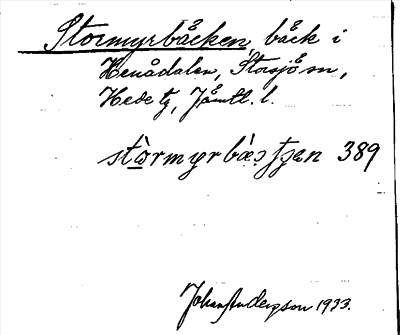 Stormyrbäcken, bäck i
Henådalen, Storsjö sn,
Hede tg, Jämtl. l.
389
Johan Andersson 1933.